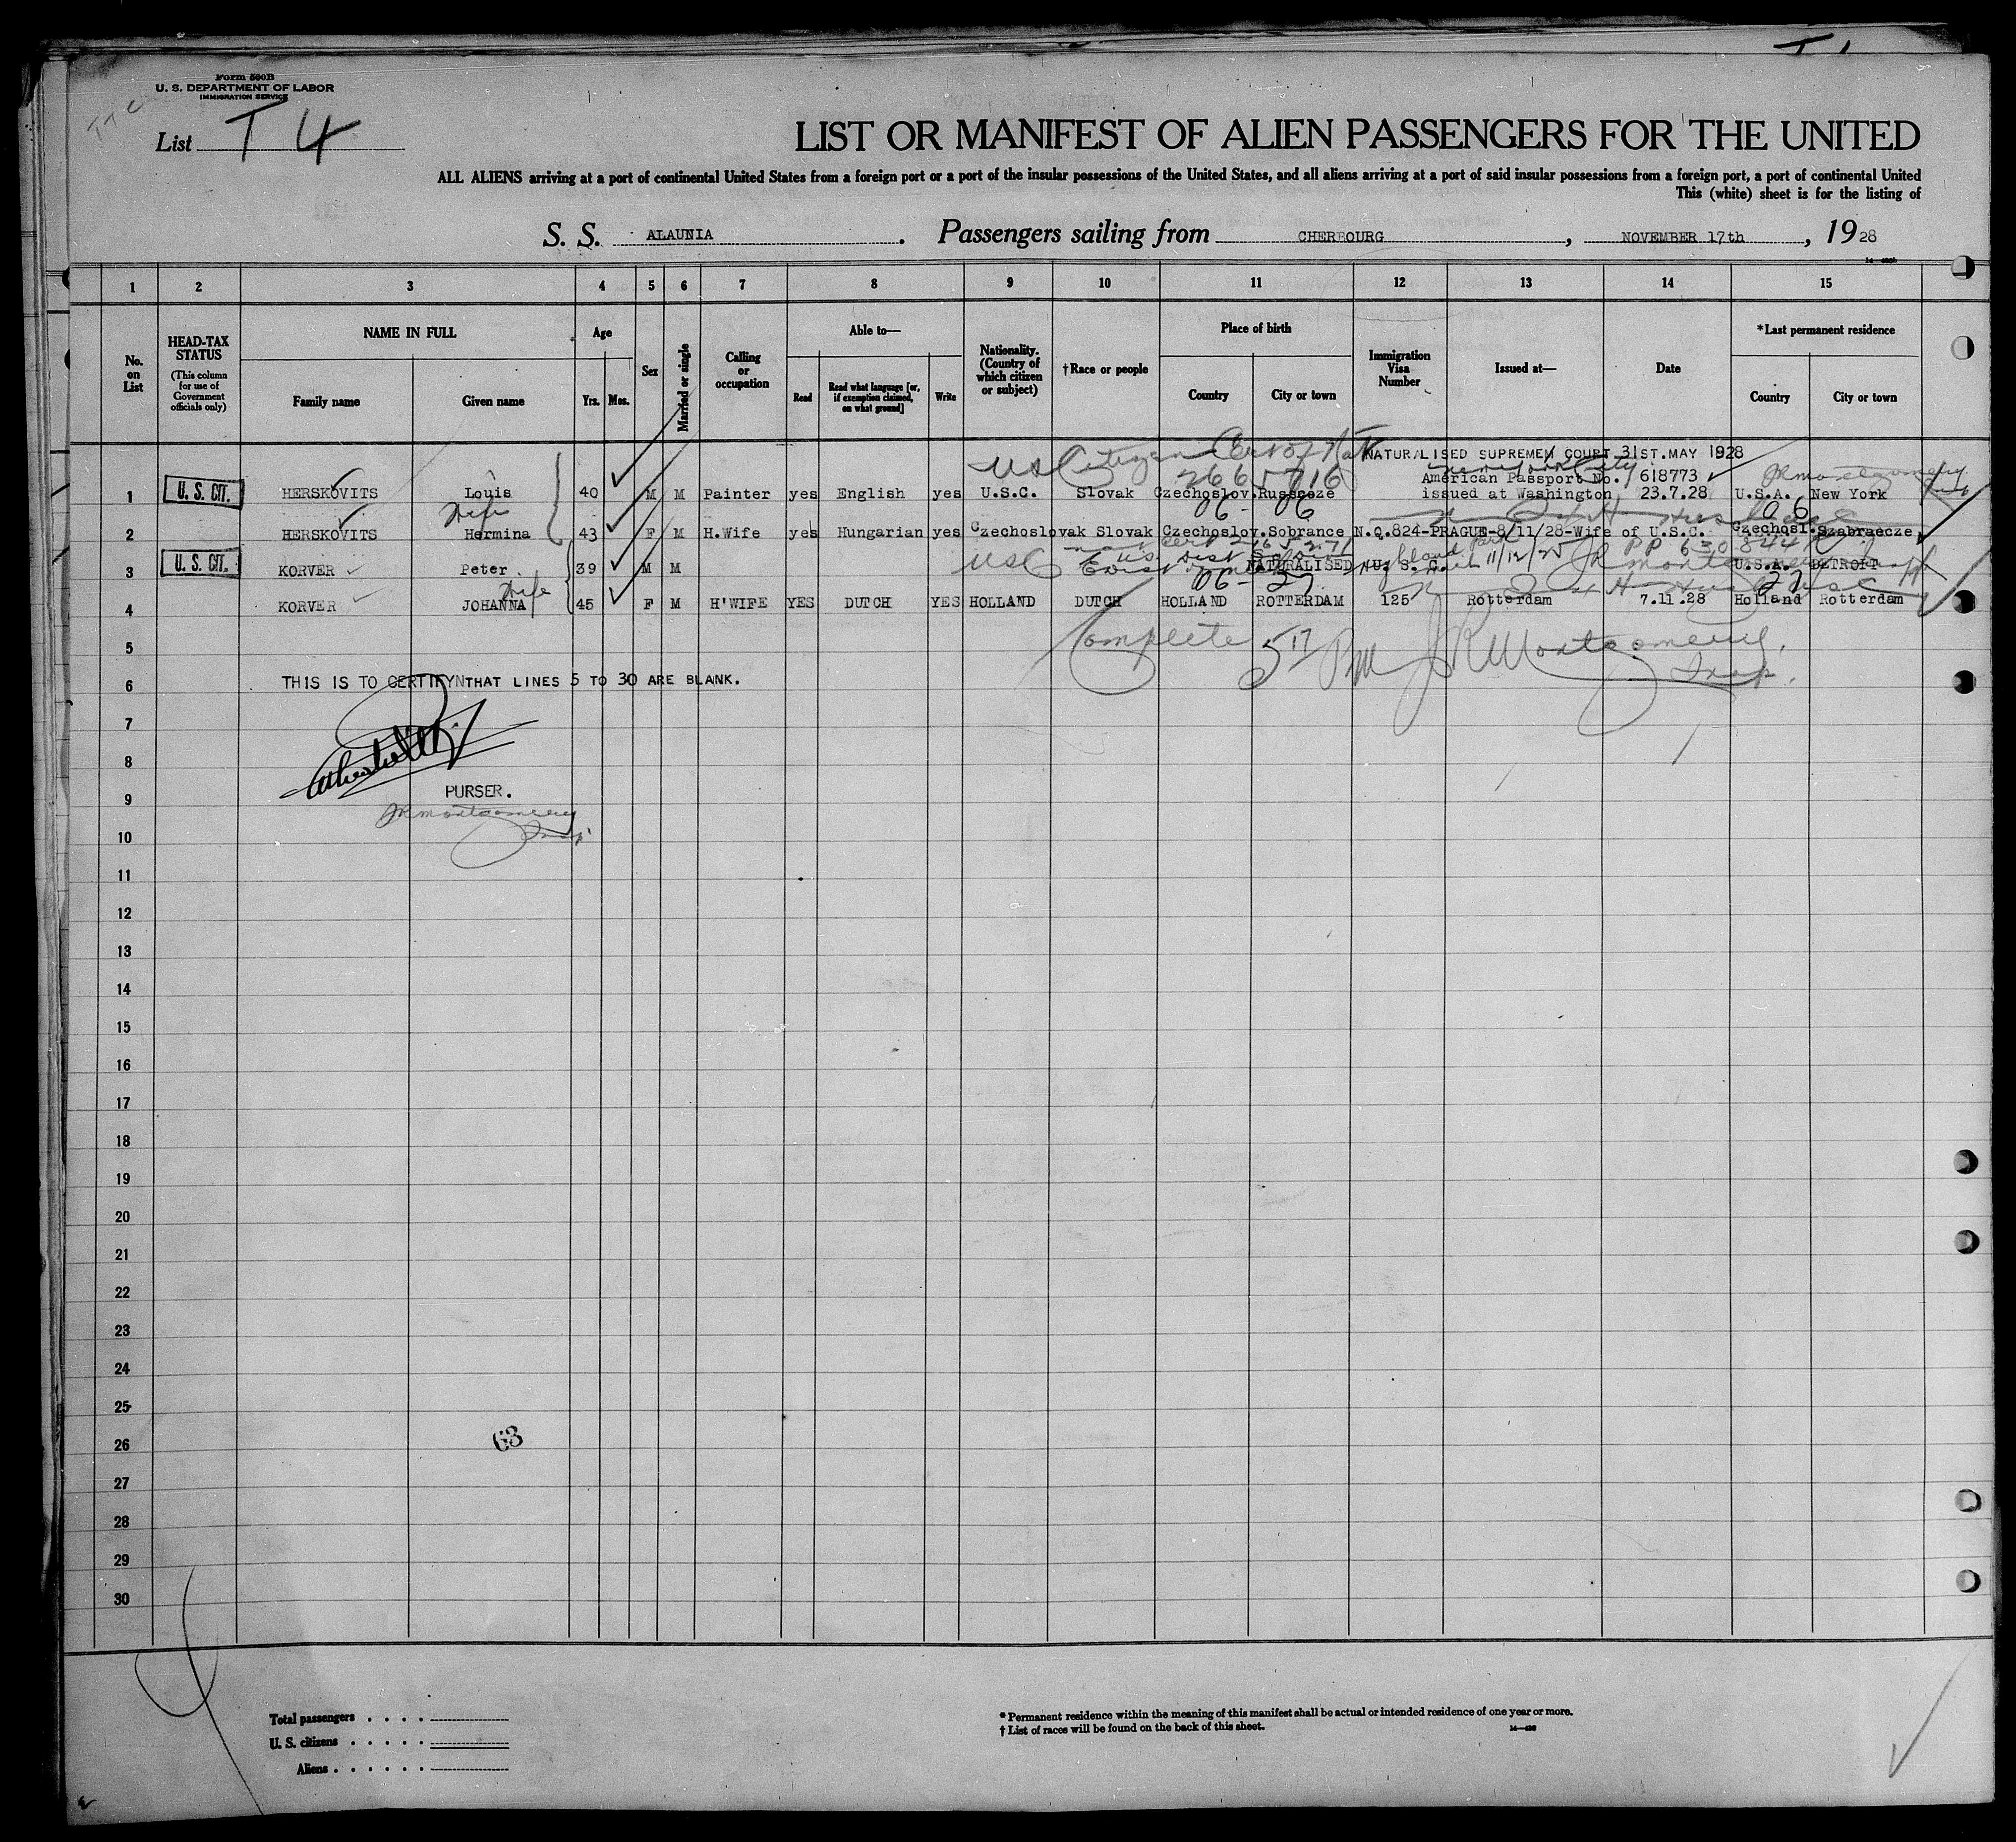 Form 500B
U. S. DEPARTMENT OF LABOR
IMMIGRATION SERVICE
List T 4
LIST OR MANIFEST OF ALIEN PASSENGERS FOR THE UNITED
ALL ALIENS arriving at a port of continental United States from a foreign port or a port of the insular possessions of the United States, and all aliens arriving at a port of said insular possessions from a foreign port, a port of continental United
This (white) sheet is for the listing of
S. S. ALAUNIA. Passengers sailing from CHERBOURG, NOVEMBER 17th, 1928
1 2 3 4 5 6 7 8 9 10 11 12 13 14 15
No. on List
HEAD-TAX STATUS
(This column for use of Government officials only)
NAME IN FULL
Family name
Given name
Age
Yrs. Mos.
Sex
Married or single
Calling or occupation
Able to—
Read
Read what language [or, if exemption claimed, on what ground]
Write
Nationality. (Country of which citizen or subject)
†Race or people
Place of birth
Country
City or town
Immigration Visa Number
Issued at—
Date
*Last permanent residence
Country
City or town
US Citizen Cert of Nat NATURALISED SUPREMEM COURT 31ST.MAY 1928
2665716 New York City
American Passport No. 618773 JRMontgomery Insp
1 U. S. CIT. HERSKOVITS Louis 40 M M Painter yes English yes U.S.C. Slovak Czechoslov. Russcoze issued at Washington 23.7.28 U.S.A. New York
Wife 06 - 06 06
2 HERSKOVITS Hermina 43 F M H.Wife yes Hungarian yes Czechoslovak Slovak Czechoslov. Sobrance N.Q.824-PRAGUE-8/11/28-Wife of U.S.C. Czechosl. Szabraecze
USC 11/12/25 PP 630844
3 U. S. CIT. KORVER Peter 39 M M NATURALISED U. S. C. U.S.A. DETROIT
Wife 06 - 27 27
4 KORVER JOHANNA 45 F M H'WIFE YES DUTCH YES HOLLAND DUTCH HOLLAND ROTTERDAM 125 Rotterdam 7.11.28 Holland Rotterdam
5 Complete 5 17 PM JRMontgomery, Insp.
6 THIS IS TO CERTIFYNTHAT LINES 5 TO 30 ARE BLANK.
7
8
PURSER.
9
JRMontgomery
Insp.
10
11
12
13
14
15
16
17
18
19
20
21
22
23
24
25
26
63
27
28
29
30
Total passengers
U. S. citizens
Aliens
* Permanent residence within the meaning of this manifest shall be actual or intended residence of one year or more.
† List of races will be found on the back of this sheet.